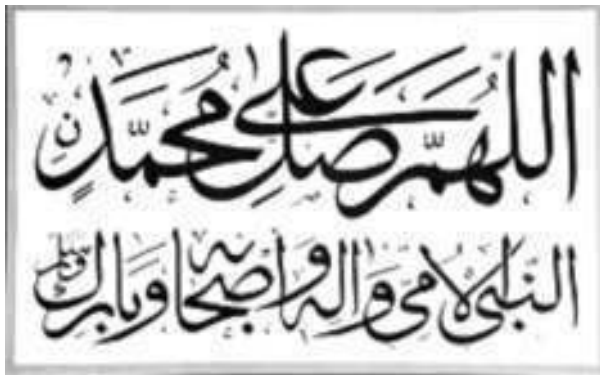 اللهم صل على محمدن
النبي الامي واله واصحابه وبارك وسلم